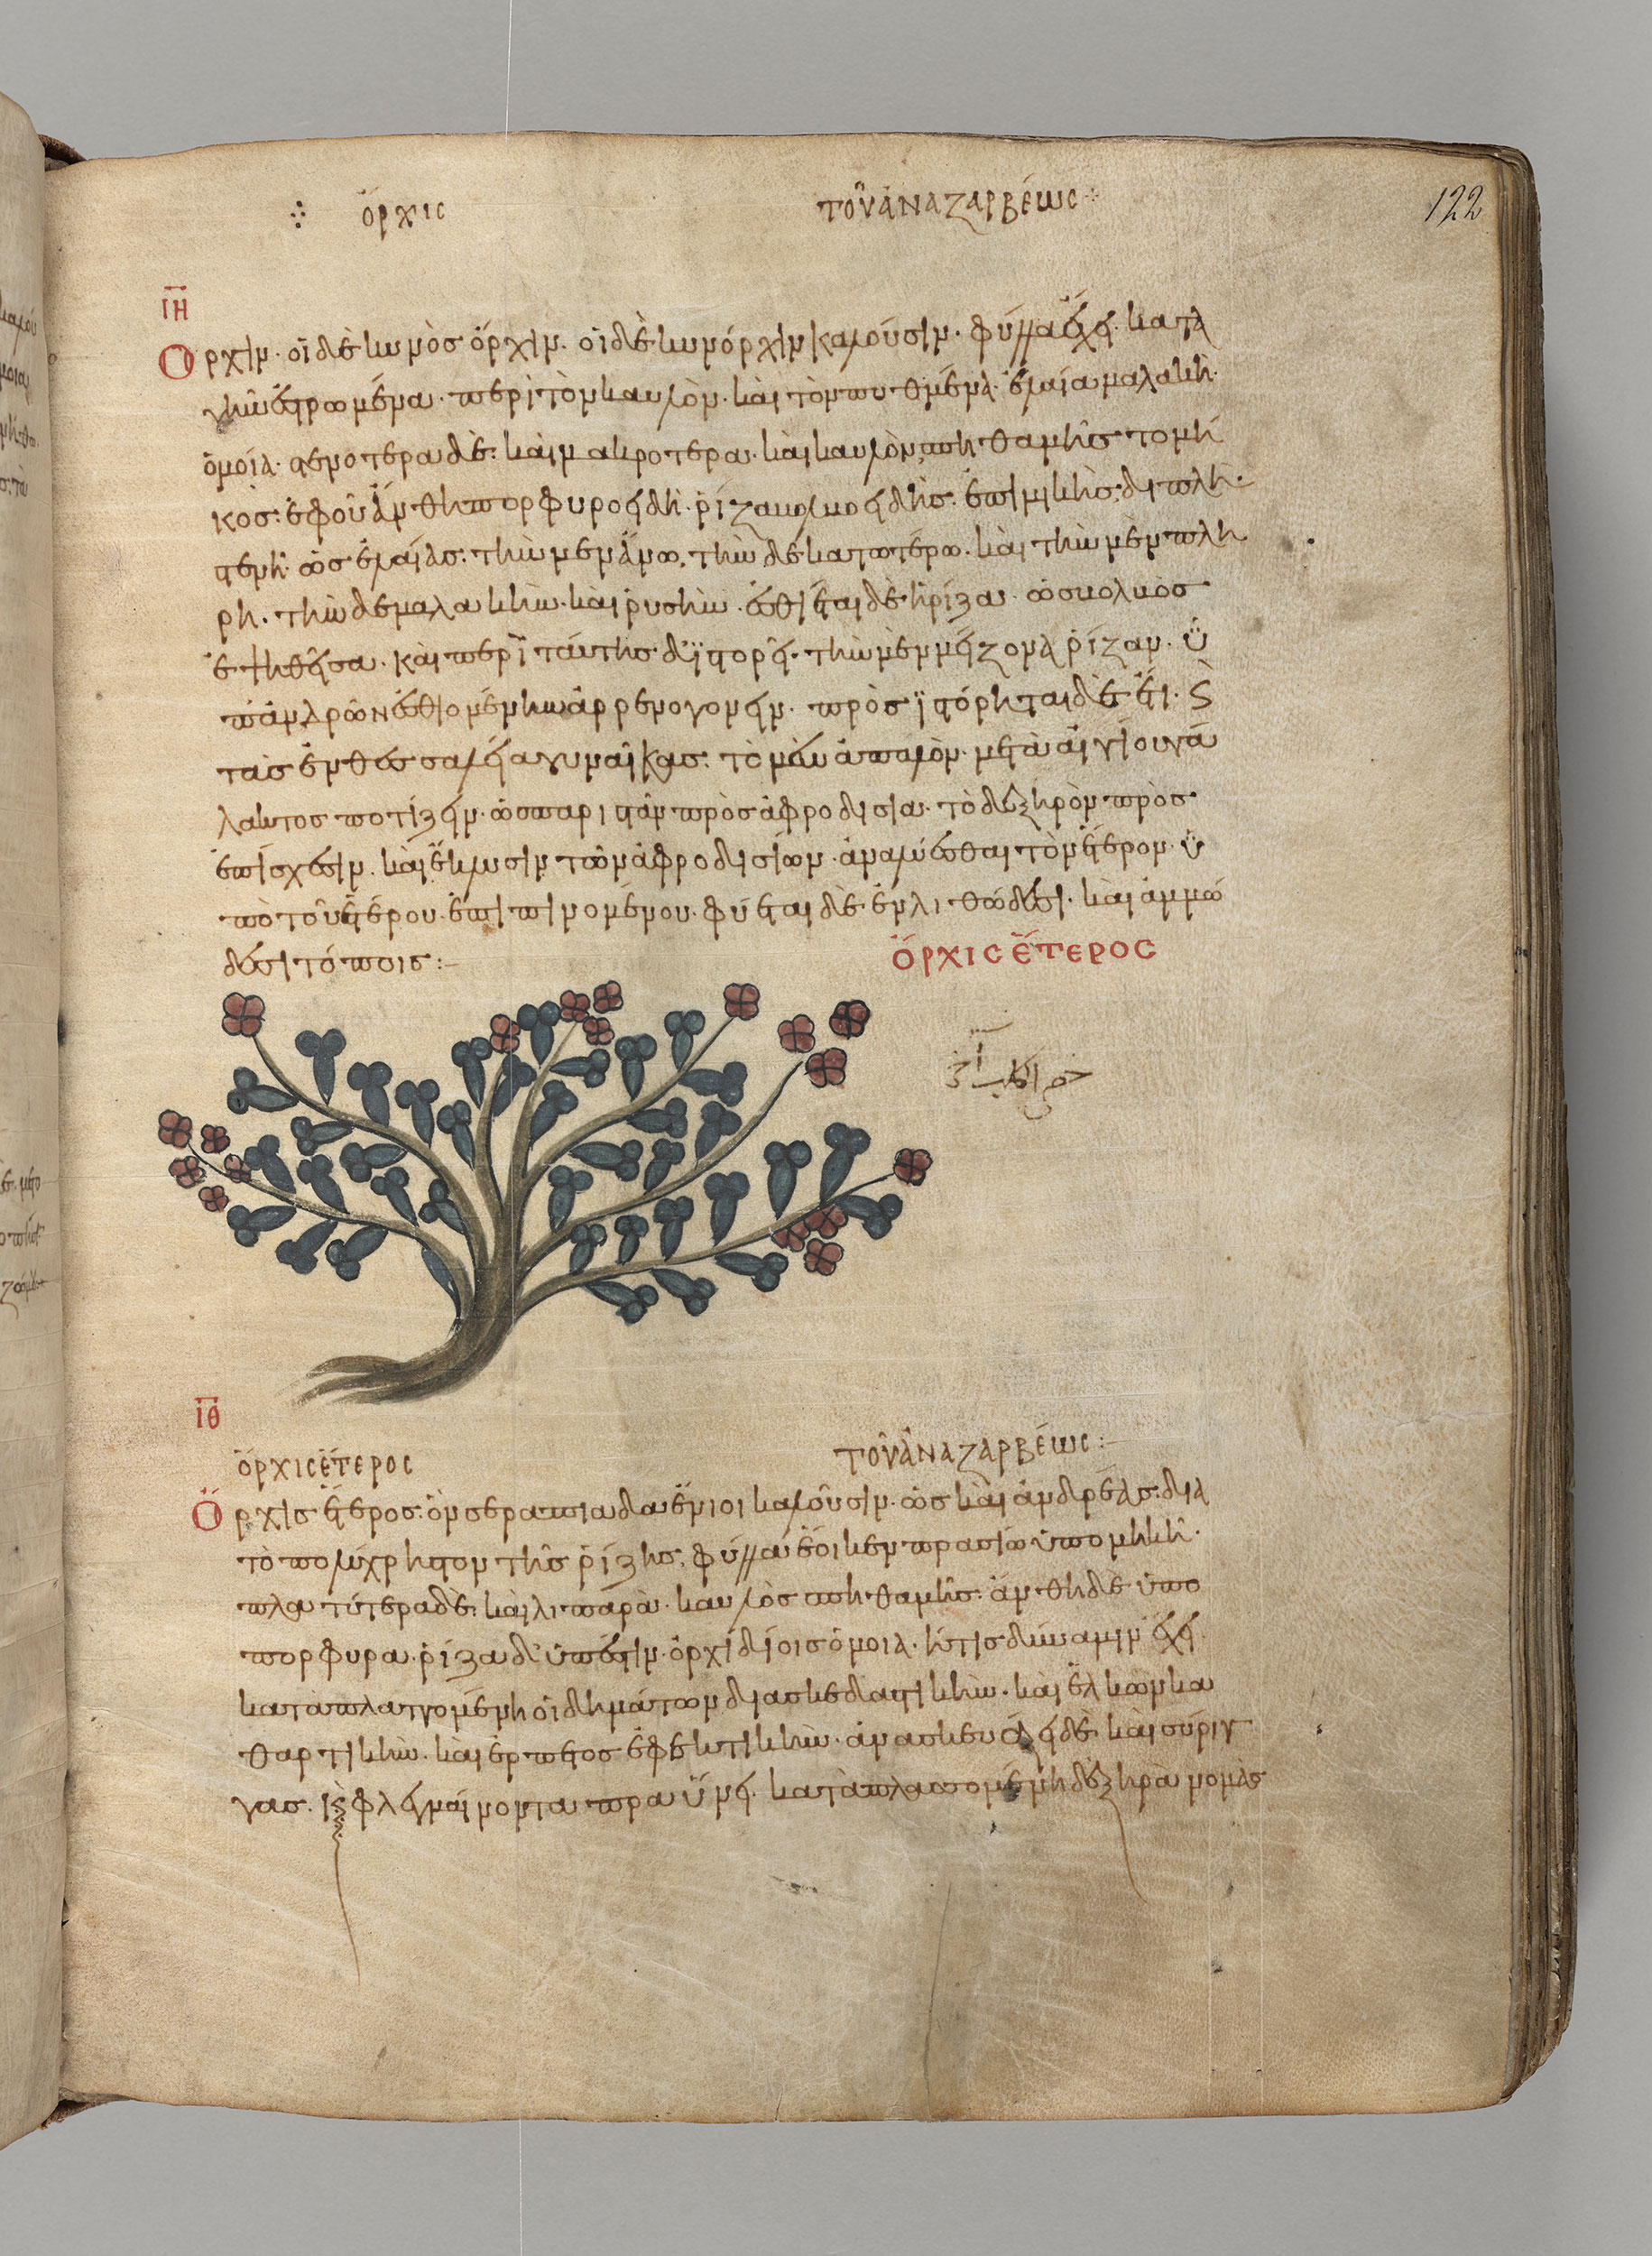 ὄρχις τοῦ ἀναζαρβέως
122
ιη
Ορχιν· οἱ δὲ κυνὸσ ὄρχιν· οἱ δὲ κυνόρχιν καλούσιν· φύλλα ἔχει· κατὰ
γῆν ἐστρωμένα· περὶ τὸν καυλὸν· καὶ τὸν πυθμένα· ἐλαία μαλακῆ·
ὁμοία· στενοτερα δὲ· καὶ μακροτερα· καὶ καυλὸν σπηθαμῆς το μή
κος· ἐφ οὗ ἄνθη πορφυροειδῆ· ρίζα βολβοειδὴς· ἐπιμήκης· διπλῆ·
στενὴ ὡς ἐλαίας· τὴν μεν ἄνω, τὴν δὲ κατωτέρω· καὶ τὴν μὲν πλή
ρη· τὴν δε μαλακὴν· καὶ ρυσὴν· ἐσθίεται δὲ ἡ ρίζα· ὡσ βολβὸσ
ἑψηθεῖσα· καὶ περὶ ταύτης δ' ἱστορεῖ· τὴν μὲν μείζονα ρίζαν· ὑ
π' ἀνδρῶν ἐσθιομένην ἀρρενογονεῖν· πρὸσ ἱστόρηται δὲ ἔτι· ϛ
τὰς ἐν θεσσαλεία γυναῖκας· τὸ μὲν ἁπαλὸν· μετὰ αἰγίου γά
λακτος ποτίζειν· ὡς παριστᾶν πρὸς ἀφροδισια· τὸ δὲ ξηρὸν πρὸς
ἐπίσχεσιν· καὶ ἔκλυσιν τῶν ἀφροδισίων· ἀναλύεσθαι τὸν ἕτερον· ὑ
πὸ τοῦ ἑτέρου· ἐπιπινομένου· φύεται δὲ ἐν λιθώδεσι· καὶ ἀμμώ
δεσι τόποις:–
ὄρχις ἕτερος
خصى الكلب آخر
ιθ
ὄρχις ἕτερος τοῦ ἀναζαρβέως:–
Ὄρχισ ἕτερος· ὃν σεραπιαδα ἔνιοι καλοῦσιν· ὡς καὶ ἀνδρέας· δια
τὸ πολύχρηστον τῆς ρίζης· φύλλα ἔοικεν πρασίω ὑπομήκη·
πλατύτερα δὲ· καὶ λιπαρὰ· καυλὸς σπηθαμῆς· ἄνθη δὲ ὑπο
πορφυρα· ρίζα δ' ὕπεστιν· ὀρχιδίοις ὁμοια· ἥτις δύναμιν ἔχει·
καταπλαττομένη οἰδημάτων διασκεδαστικὴν· καὶ ἑλκῶν κα
θαρτικὴν· καὶ ἕρπετος ἐφεκτικὴν· ἀνασκευάζει δὲ καὶ σύριγ
γας· ϗ φλεγμαίνοντα πραΰνει· κατὰπλασσομένη δὲ ξηρὰ νομὰς